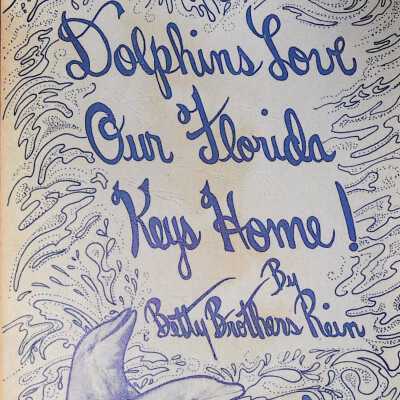 Dolphins Love
Our Florida
Keys Home!
By
Betty Brothers Rein